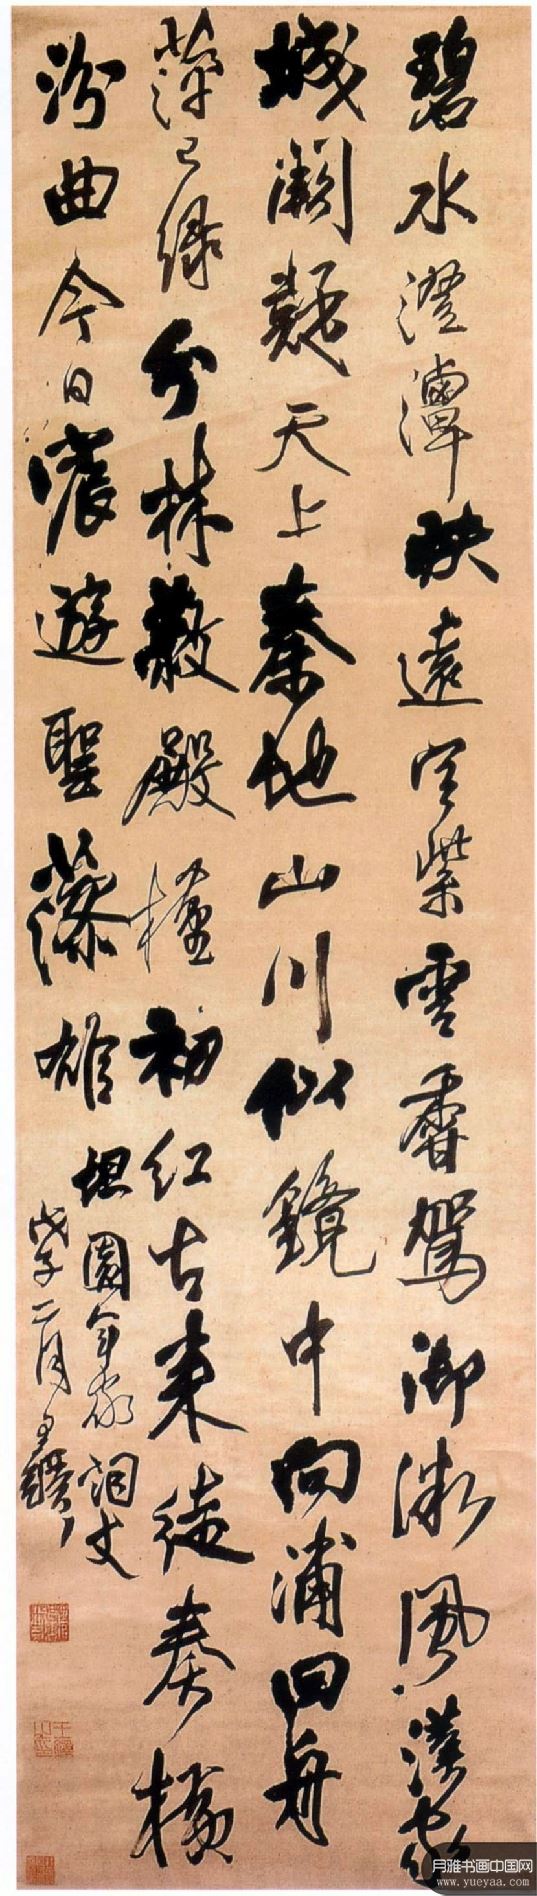 碧水澄潭映遠空紫雲香駕御微風漢家
城闕疑天上秦地山川似鏡中向浦回舟
萍已綠分林蔽殿槿初紅古來徒奏橫
汾曲今日宸遊聖藻雄
坦園年家詞丈
戊子二月王鐸
月雅书画中国网
www.yueyaa.com